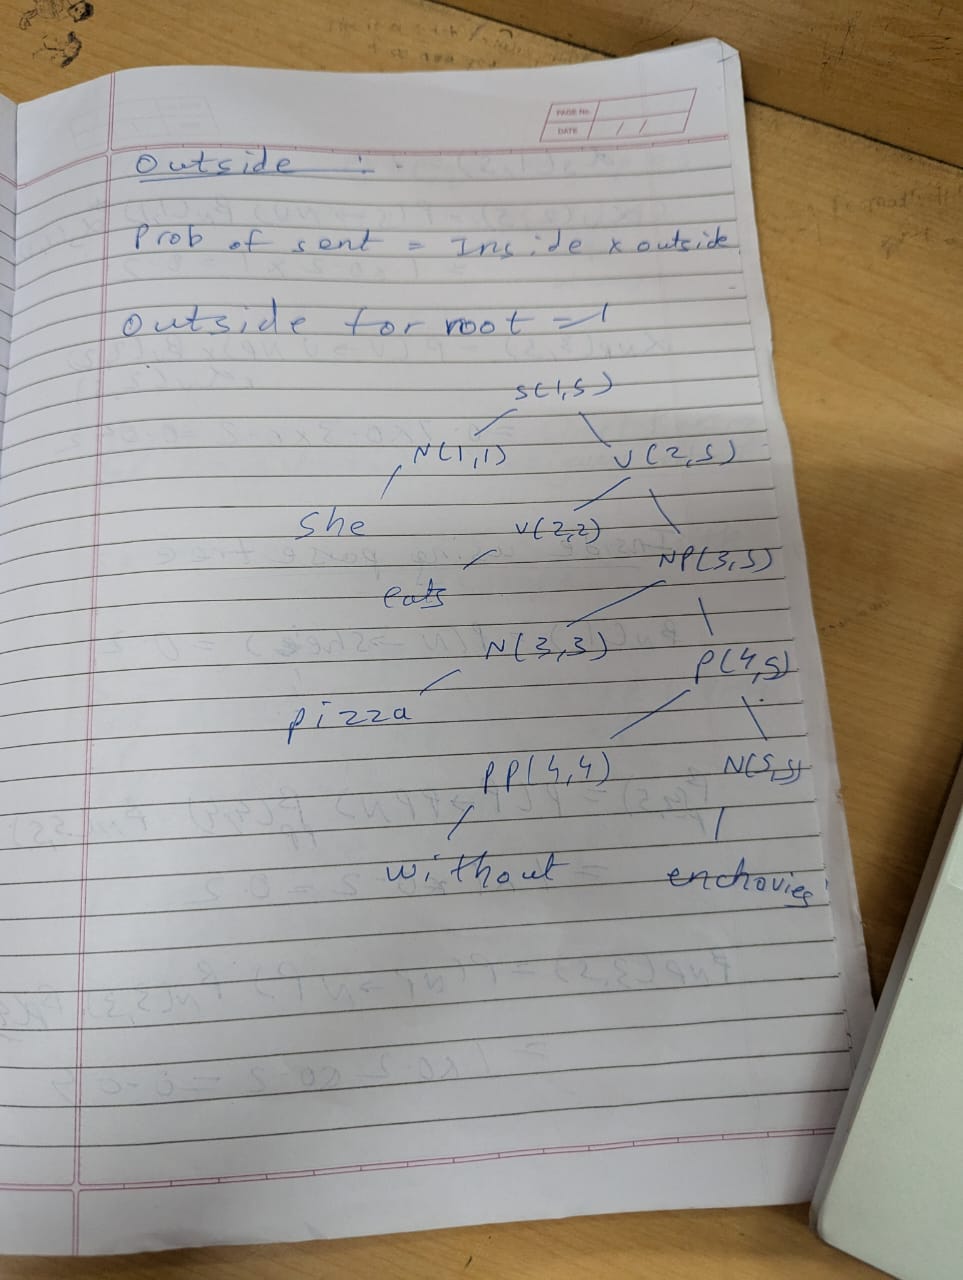 PAGE No.
DATE / /
Outside :
Prob of sent = Inside x outside
Outside for root = 1
S(1,5)
N(1,1) V(2,5)
She V(2,2)
NP(3,5)
eats
N(3,3) P(4,5)
pizza
PP(4,4) N(5,5)
without enchovies